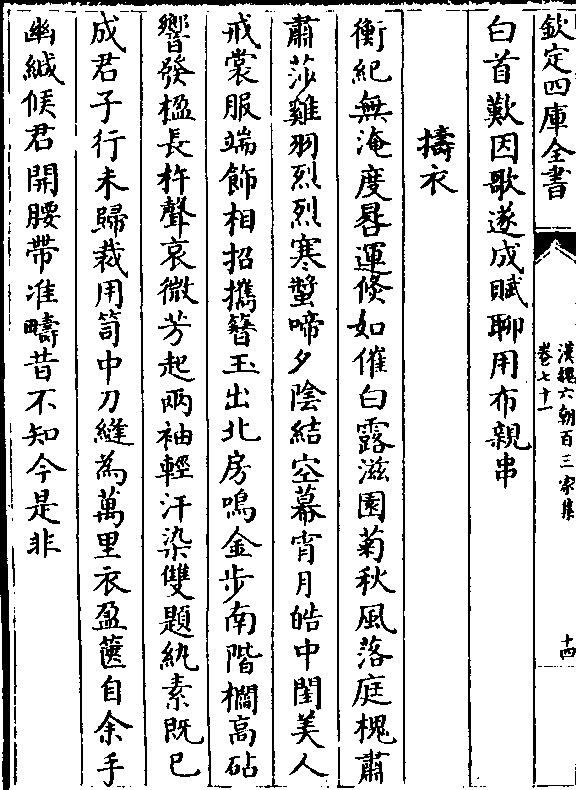 欽定四庫全書
漢魏六朝百三家集
卷七十一
十四
白首歎因歌遂成賦聊用布親串
擣衣
衡紀無淹度晷運倐如催白露滋園菊秋風落庭槐肅
肅莎雞羽烈烈寒螿啼夕陰結空幕宵月皓中閨美人
戒裳服端飾相招攜簪玉出北房鳴金步南階櫩高砧
響發楹長杵聲哀微芳起兩袖輕汗染雙題紈素既已
成君子行未歸裁用笥中刀縫為萬里衣盈篋自余手
幽緘候君開腰帶准疇昔不知今是非